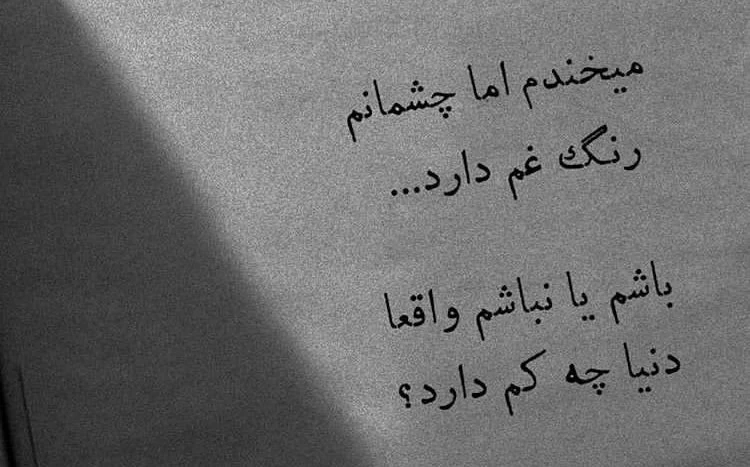 میخندم اما چشمانم
رنگ غم دارد...
باشم یا نباشم واقعا
دنیا چه کم دارد؟